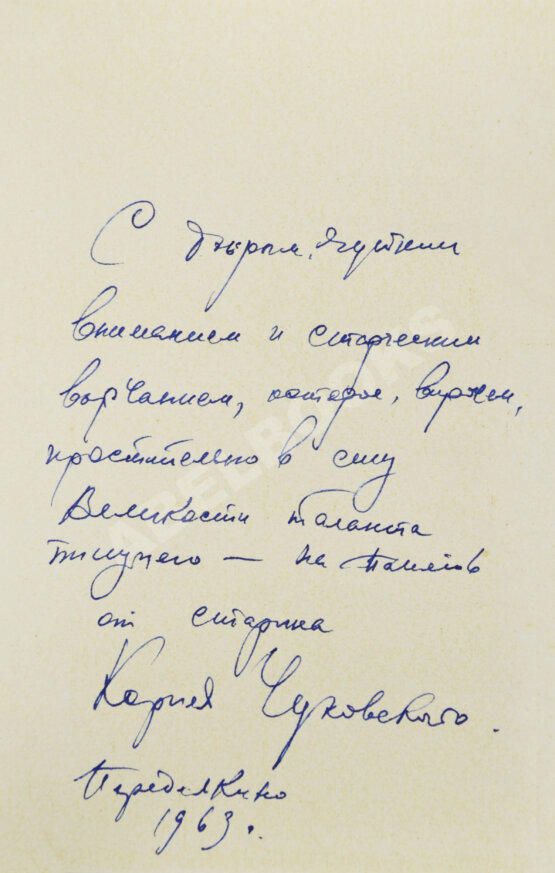 С добрым, чутким
вниманием и старческим
ворчанием, которое, впрочем,
простительно в силу
Великости таланта
пишущего — на память
от старика
Корнея Чуковского.
Переделкино
1963.
ABELBOOKS